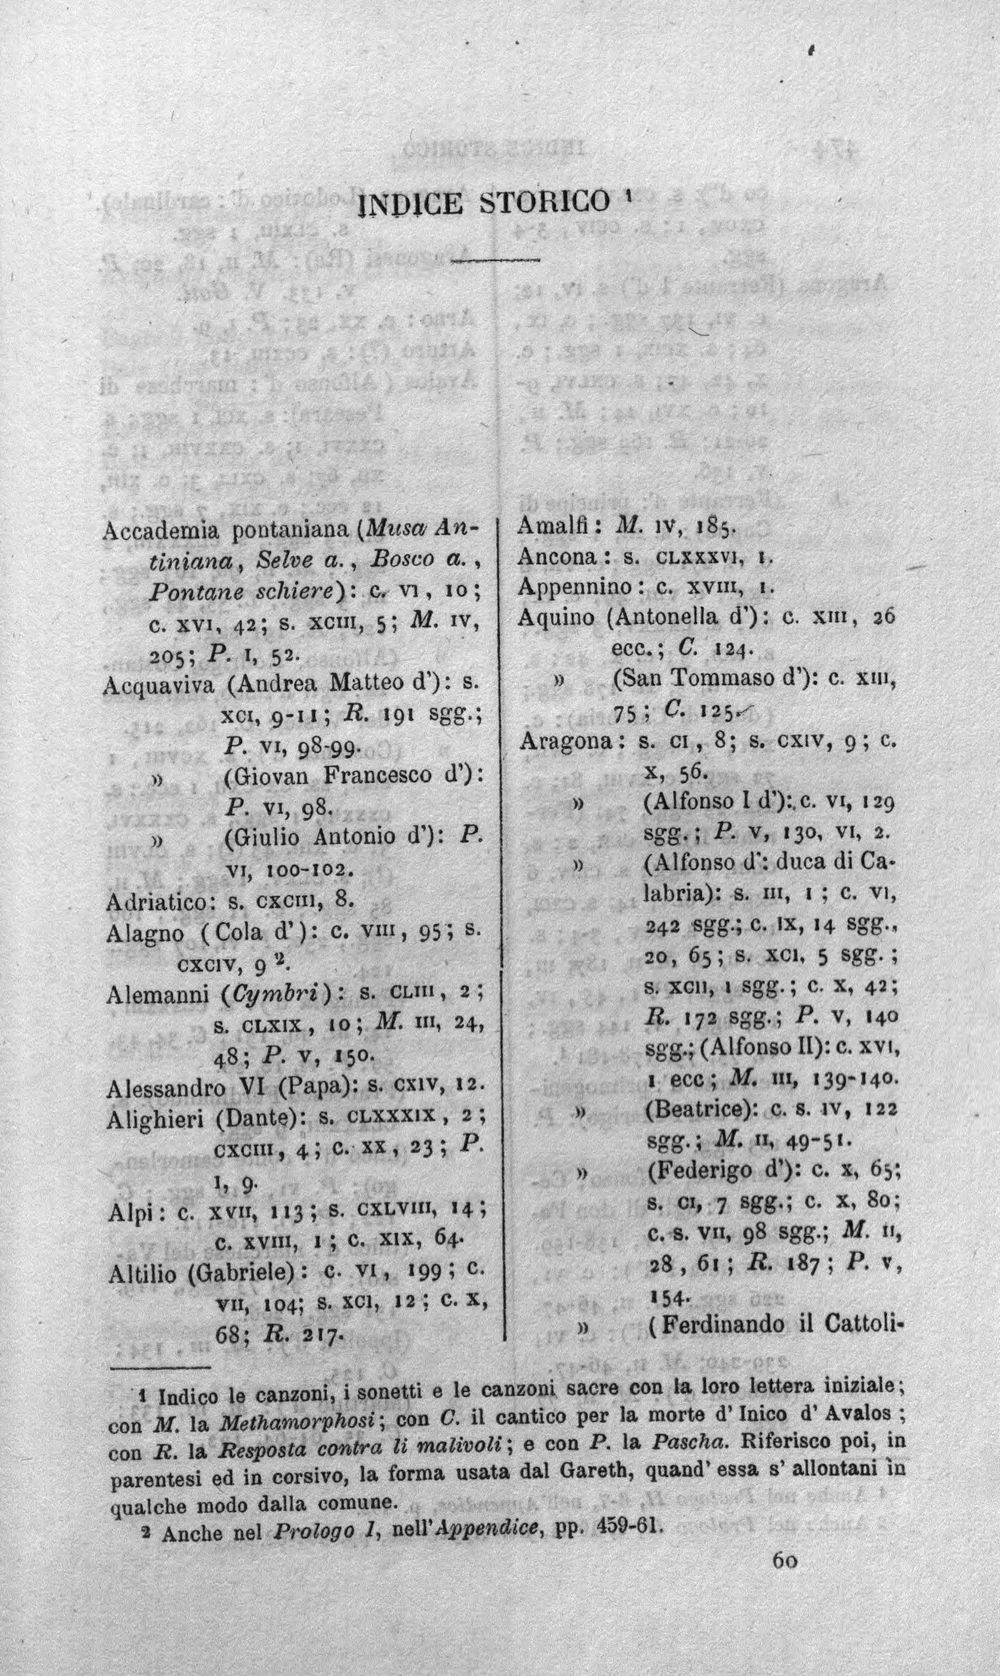 INDICE STORICO ¹
Accademia pontaniana (Musa An-
tiniana, Selve a., Bosco a.,
Pontane schiere): c. VI, 10;
c. XVI, 42; s. XCIII, 5; M. IV,
205; P. I, 52.
Acquaviva (Andrea Matteo d'): s.
XCI, 9-11; R. 191 sgg.;
P. VI, 98-99.
» (Giovan Francesco d'):
P. VI, 98.
» (Giulio Antonio d'): P.
VI, 100-102.
Adriatico: s. CXCIII, 8.
Alagno (Cola d'): c. VIII, 95; s.
CXCIV, 9 ².
Alemanni (Cymbri): s. CLIII, 2;
s. CLXIX, 10; M. III, 24,
48; P. V, 150.
Alessandro VI (Papa): s. CXIV, 12.
Alighieri (Dante): s. CLXXXIX, 2;
CXCIII, 4; c. XX, 23; P.
I, 9.
Alpi: c. XVII, 113; s. CXLVIII, 14;
c. XVIII, 1; c. XIX, 64.
Altilio (Gabriele): c. VI, 199; c.
VII, 104; s. XCI, 12; c. X,
68; R. 217.
Amalfi: M. IV, 185.
Ancona: s. CLXXXVI, 1.
Appennino: c. XVIII, 1.
Aquino (Antonella d'): c. XIII, 26
ecc.; C. 124.
» (San Tommaso d'): c. XIII,
75; C. 125.
Aragona: s. CI, 8; s. CXIV, 9; c.
X, 56.
» (Alfonso I d'): c. VI, 129
sgg.; P. V, 130, VI, 2.
» (Alfonso d': duca di Ca-
labria): s. III, 1; c. VI,
242 sgg.; c. IX, 14 sgg.,
20, 65; s. XCI, 5 sgg.;
s. XCII, 1 sgg.; c. X, 42;
R. 172 sgg.; P. V, 140
sgg.; (Alfonso II): c. XVI,
1 ecc; M. III, 139-140.
» (Beatrice): c. s. IV, 122
sgg.; M. II, 49-51.
» (Federigo d'): c. X, 65;
s. CI, 7 sgg.; c. X, 80;
c. s. VII, 98 sgg.; M. II,
28, 61; R. 187; P. V,
154.
» (Ferdinando il Cattoli-
1 Indico le canzoni, i sonetti e le canzoni sacre con la loro lettera iniziale;
con M. la Methamorphosi; con C. il cantico per la morte d' Inico d' Avalos;
con R. la Resposta contra li malivoli; e con P. la Pascha. Riferisco poi, in
parentesi ed in corsivo, la forma usata dal Gareth, quand' essa s' allontani in
qualche modo dalla comune.
2 Anche nel Prologo I, nell'Appendice, pp. 459-61.
60